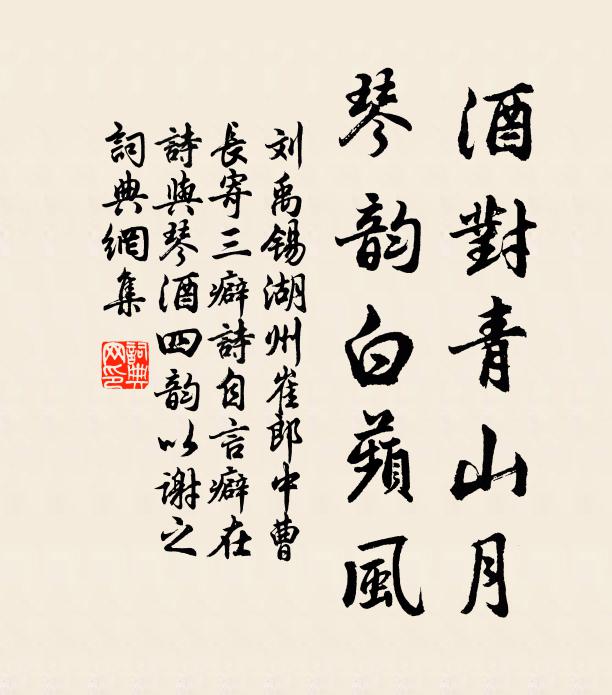 酒對青山月
琴韵白蘋風
刘禹锡湖州崔郎中曹
長寄三癖詩自言癖在
詩與琴酒四韵以谢之
詞典網集
詞典
网印